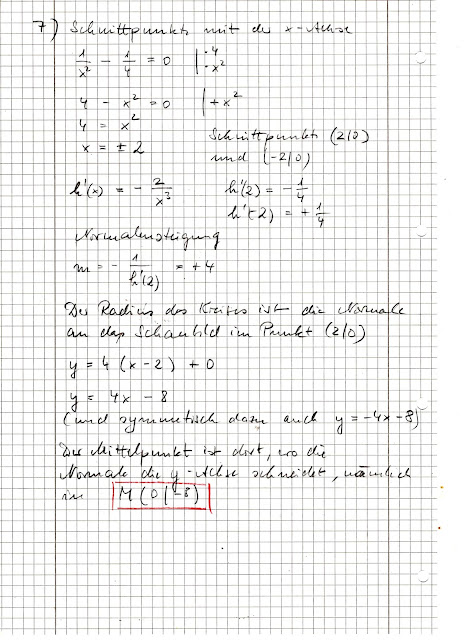 7) Schnittpunkte mit der x-Achse
1/x² - 1/4 = 0 | ·4 ·x²
4 - x² = 0 | + x²
4 = x²
x = ± 2
Schnittpunkte (2/0)
und (-2/0)
h'(x) = - 2/x³
h'(2) = - 1/4
h'(-2) = + 1/4
Normalensteigung
m = - 1/h'(2) = +4
Der Radius des Kreises ist die Normale
an das Schaubild im Punkt (2/0)
y = 4 (x-2) + 0
y = 4x - 8
(und symmetrisch dazu auch y = -4x-8)
Der Mittelpunkt ist dort, wo die
Normale die y-Achse schneidet, nämlich
in M (0/-8)